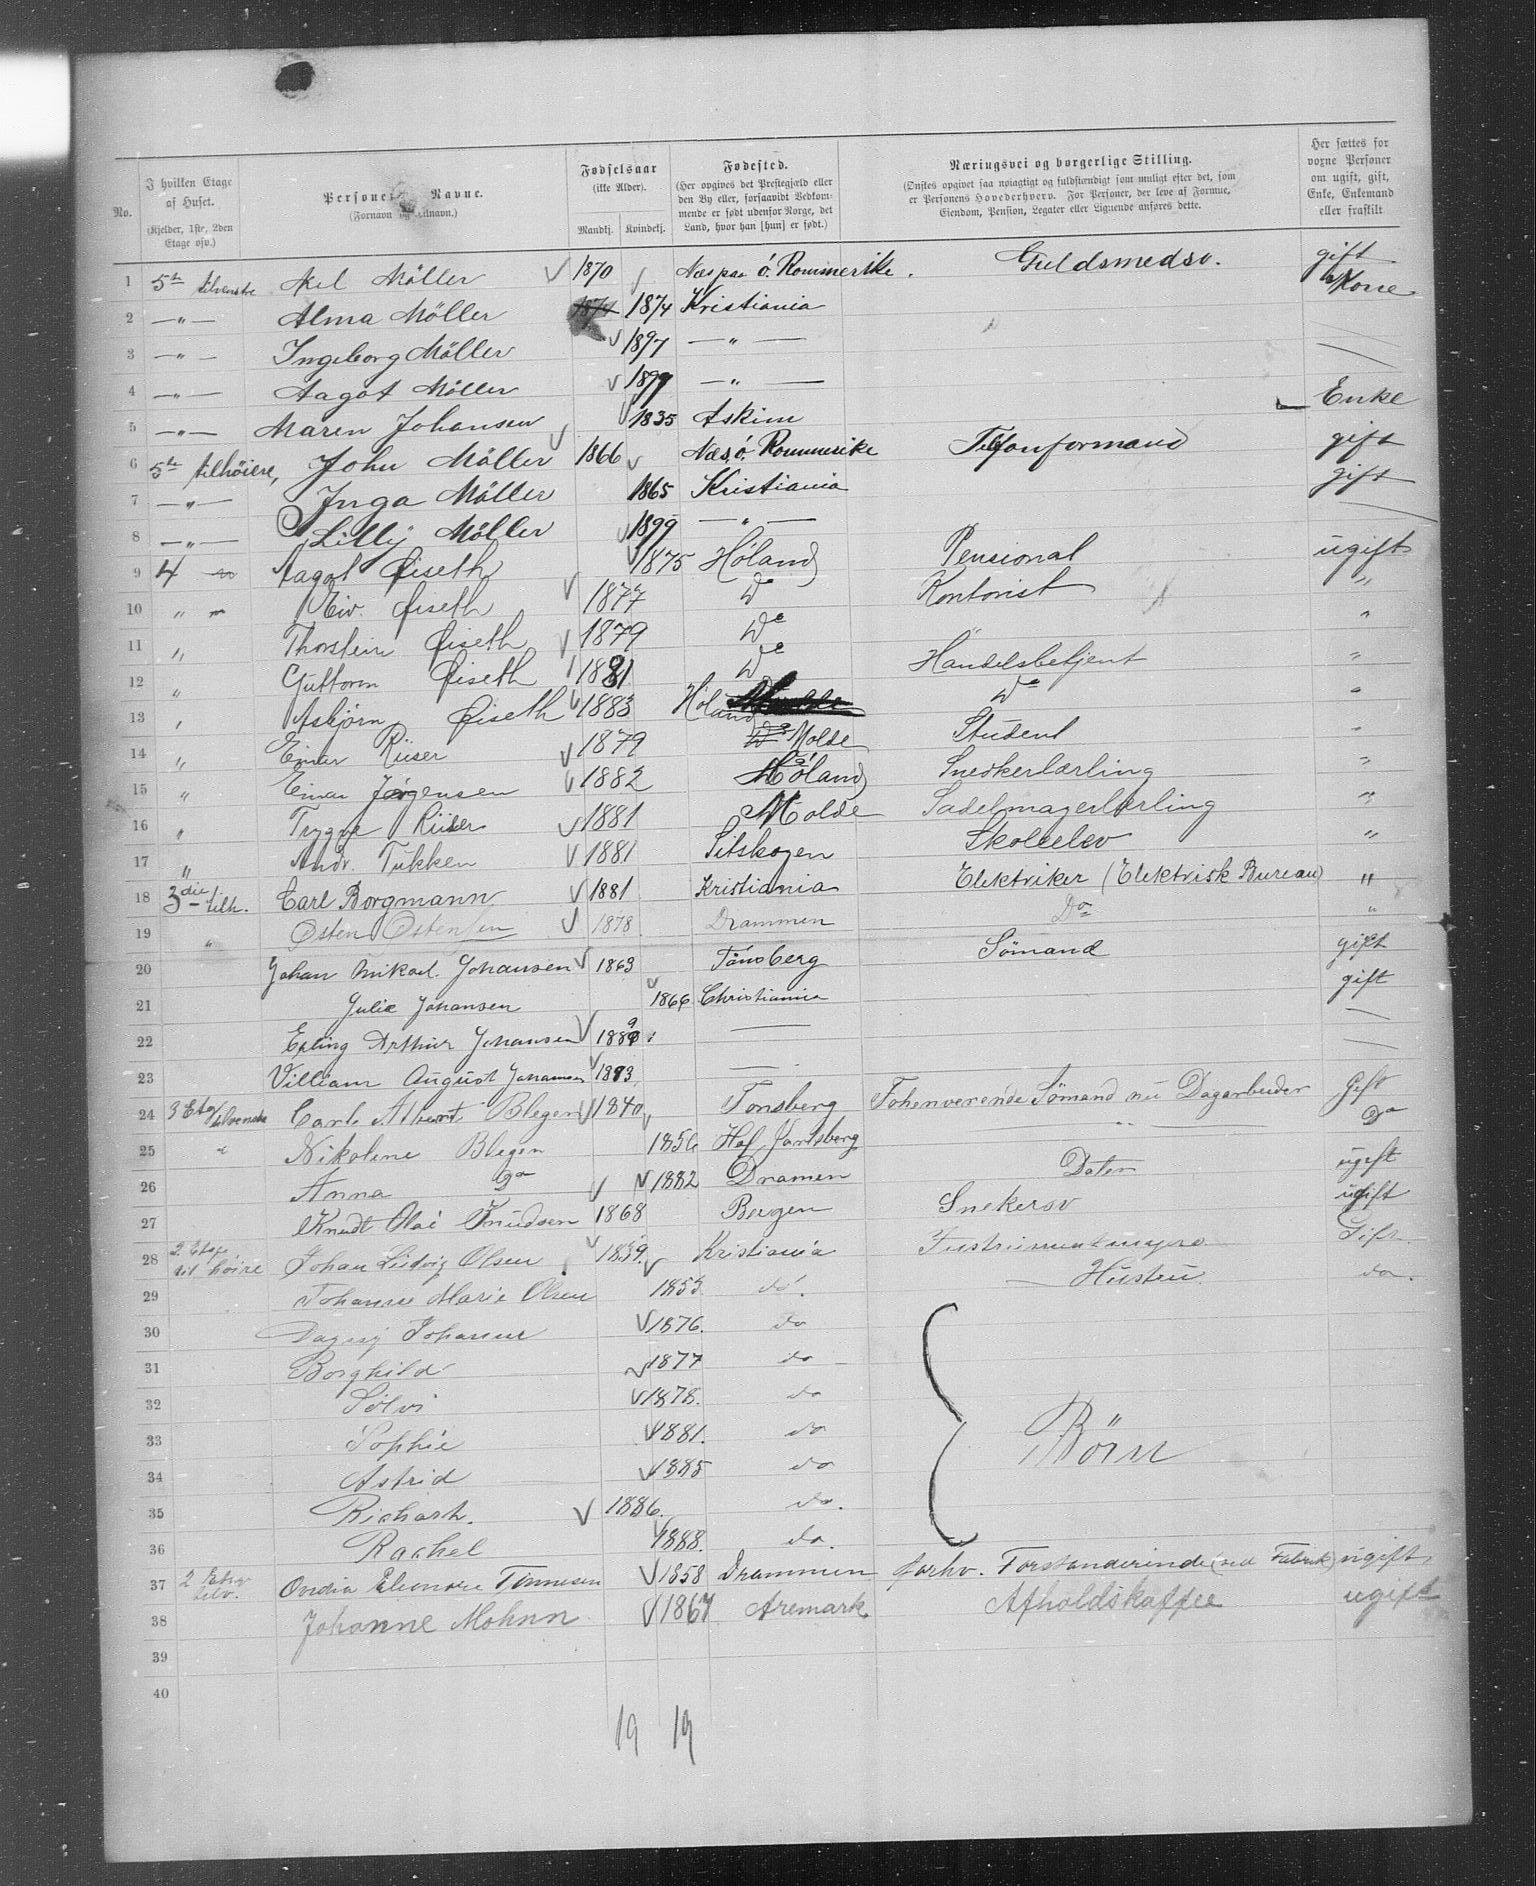 No.
I hvilken Etage af Huset.
(Kjelder, 1ste, 2den Etage osv.)
Personernes Navne.
(Fornavn og Tilnavn.)
Fødselsaar
(ikke Alder).
Mandkj. Kvindekj.
Fødested.
(Her opgives det Prestegjæld eller
den By eller, forsaavidt Vedkom-
mende er født udenfor Norge, det
Land, hvor han [hun] er født.)
Næringsvei og borgerlige Stilling.
(Ønskes opgivet saa nøiagtigt og fuldstændigt som muligt efter det, som
er Personens Hovederhverv. For Personer, der leve af Formue,
Eiendom, Pension, Legater eller Lignende anføres dette.
Her sættes for
voxne Personer
om ugift, gift,
Enke, Enkemand
eller fraskilt
1 5te tilvenstre Axel Möller 1870 Næs paa Ö. Rommerike. Guldsmedsv. gift
2 —"— Alma Möller 1874 1874 Kristiania Kone
3 —"— Ingeborg Möller 1897 —"—
4 —"— Aagot Möller 1899 —"—
5 —"— Maren Johansen 1835 Askim — Enke
6 5te tilhöire, John Möller 1866 Næs, ö. Rommerike Telefonformand gift
7 —"— Inga Möller 1865 Kristiania gift
8 —"— Lilly Möller 1899 —"—
9 4 Aagot Øiseth 1875 Höland Pensionat ugift
10 " Eiv. Øiseth 1877 Do Kontorist "
11 " Thorstein Øiseth 1879 Do "
12 " Guttorm Øiseth 1881 Do Handelsbetjent "
13 " Asbjørn Øiseth 1883 Höland Do "
14 " Einar Riiser 1879 Do Molde Student "
15 " Einar Jörgensen 1882 Höland Snedkerlærling "
16 " Trygve Riiser 1881 Molde Sadelmagerlærling "
17 " Andr. Tukken 1881 Sitskogen Skoleelev "
18 3die tilh. Carl Borgmann 1881 Kristiania Elektriker (Elektrisk Bureau) "
19 " Østen Østensen 1878 Drammen Do "
20 Johan Mikael Johansen 1863 Tönsberg Sömand gift
21 Julie Johansen 1866 Christiania gift
22 Erling Arthur Johansen 1889 —
23 Villiam August Johansen 1893 —
24 3 Etag tilvenstre Carl Albert Blegen 1840 Tonsberg Fohenverende Sömand nu Dagarbeider Gift
25 " Nikoline Blegen 1856 Hof Jarlsberg " — Do
26 Anna Do 1882 Dramen Dater ugift
27 Knudt Olai Knudsen 1868 Bergen Snekersv ugift
28 2 Etage til höire Johan Ludvig Olsen 1839. Kristiania Instrumentmagre Gift.
29 Johanne Marie Olsen 1853 do. Husteu do.
30 Dagny Johanne 1876. do
31 Borghild 1877 do
32 Solvi 1878. do
33 Sophie 1881. do
34 Astrid 1885 do
Börn
35 Richart. 1886. do.
36 Rachel 1888. do.
37 2 Etag tilv. Ovidia Eleonore Tönnesen 1858 Drammen forhv. Forstanderinde (ved Fabrik) ugift
38 Johanne Mohnn 1867 Aremark Afholdskaffee ugift
39
40
19 19